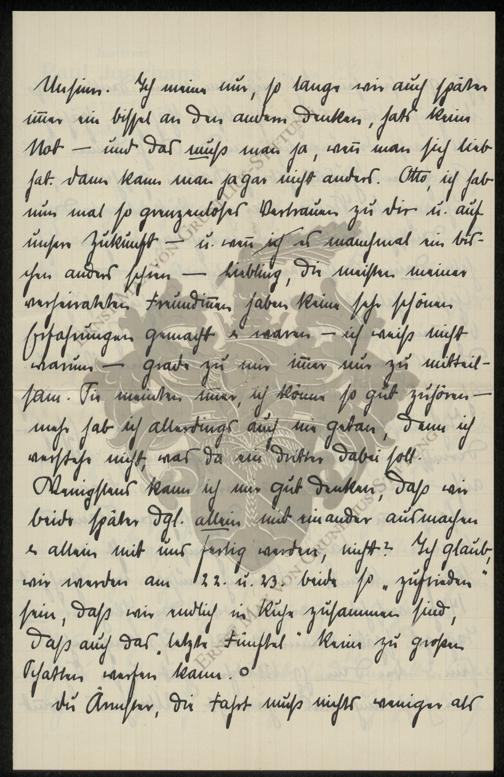 Unsinn. Ich meine nur, so lange wir auch später
immer ein bissel an den andern denken, hats keine
Not — und das muß man ja, wenn man sich lieb
hat. Dann kann man ja gar nicht anders. Otto, ich hab
nun mal so grenzenloses Vertrauen zu dir u. auf
unsere Zukunft — u. wenn ich es manchmal ein bis-
chen anders — Liebling, die meisten meiner
verheirateten Freundinnen haben keine sehr schönen
Erfahrungen gemacht u waren — ich weiß nicht
warum — grade zu mir immer nur zu mitteil-
sam. Sie meinten immer, ich könne so gut zuhören —
mehr hab ich allerdings auch nie getan, denn ich
verstehe nicht, was da ein Dritter dabei soll.
Wenigstens kann ich mir gut denken, daß wir
beide später dgl. allein mit einander ausmachen
u allein mit uns fertig werden, nicht? Ich glaub,
wir werden am 22. u. 23. beide so „zufrieden"
sein, daß wir endlich in Ruhe zusammen sind,
daß auch das „letzte Fünftel" keine zu großen
Schatten werfen kann.
Du Ärmster, die Fahrt muß nichts weniger als
ERNST MAX VON GRUNELIUS-STIFTUNG
ERNST MAX VON GRUNELIUS-STIFTUNG